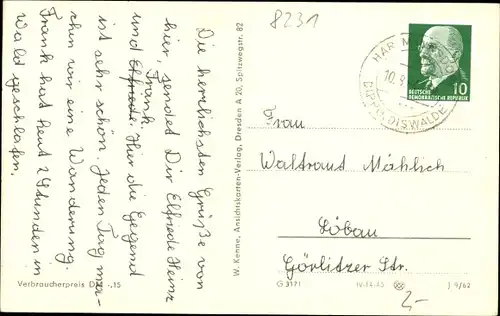 8231
Die herzlichsten Grüße von
hier, sendet Dir Elfriede Heinz
und Elfriede. Frank. Hier die Gegend
ist sehr schön. Jeden Tag ma-
chen wir eine Wanderung.
Frank hat heut 2 Stunden im
Wald geschlafen.
Verbraucherpreis DM -,15
W. Kenne, Ansichtskarten-Verlag, Dresden A 20, Spitzwegstr. 82
10
DEUTSCHE
DEMOKRATISCHE REPUBLIK
DIPPOLDISWALDE
Frau
Waltraut Mählich
Löbau
Görlitzer Str.
G 3171
J 9/62
2-